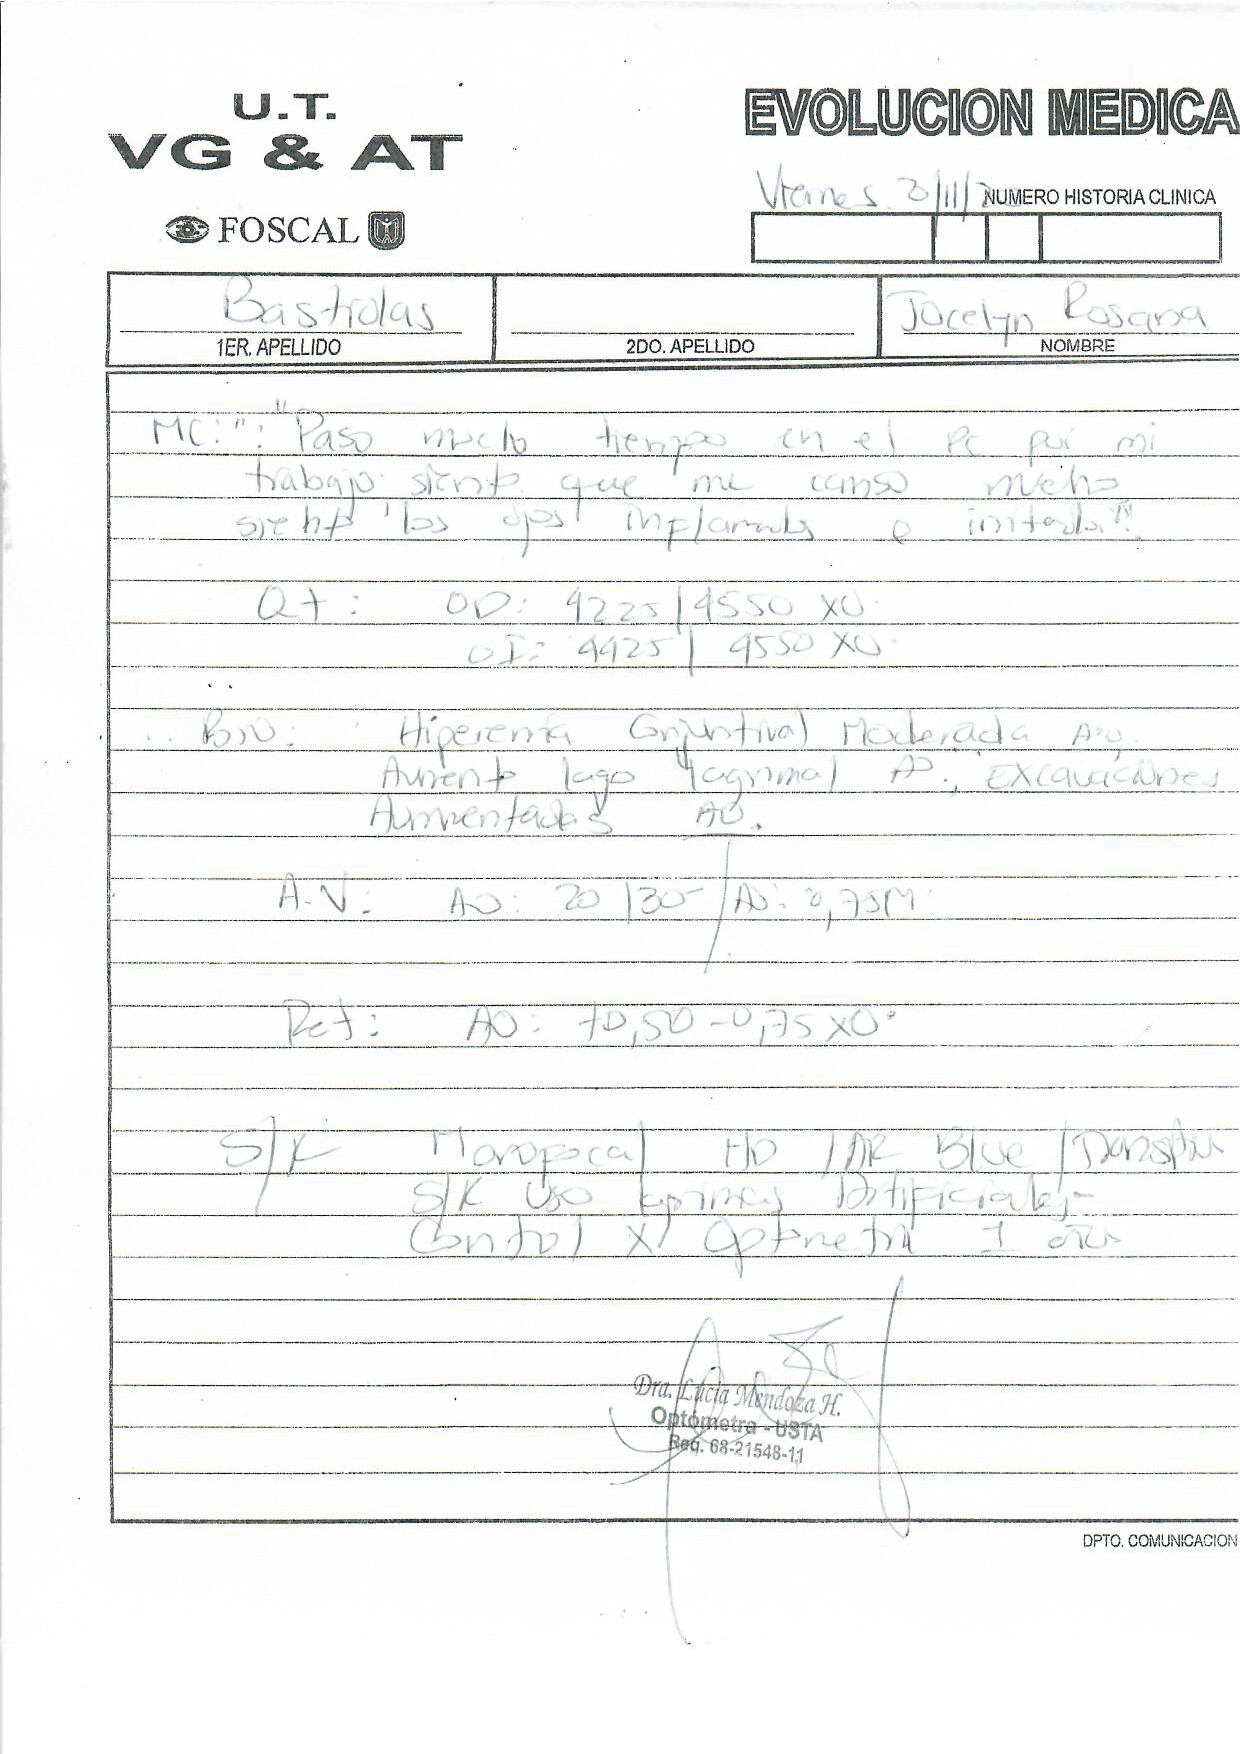 U.T.
VG & AT
FOSCAL
EVOLUCION MEDICA
Viernes 3/11/
NUMERO HISTORIA CLINICA
Bastidas
1ER. APELLIDO
2DO. APELLIDO
Jocelyn Rosana
NOMBRE
MC: ": "Paso mucho tiempo en el Pc por mi
trabajo siento que me canso mucho
siento los ojos inflamados e irritados".
Qt: OD: 4225/4550 X0°
OI: 4425/4550 X0°
Bio: Hiperemia Conjuntival Moderada Ao,
Aumento lago lagrimal AO, Excavaciones
Aumentadas AO.
A.V: AO: 20/30- / AO: 0,75M
Ret: AO: +0,50-0,75X0°
S/K Monofocal HD /AR Blue /
S/K Uso lagrimas Artificiales-
Control X Optometria 1 año
Dra. Lucia Mendoza H.
Optómetra - USTA
Reg. 68-21548-11
DPTO. COMUNICACION